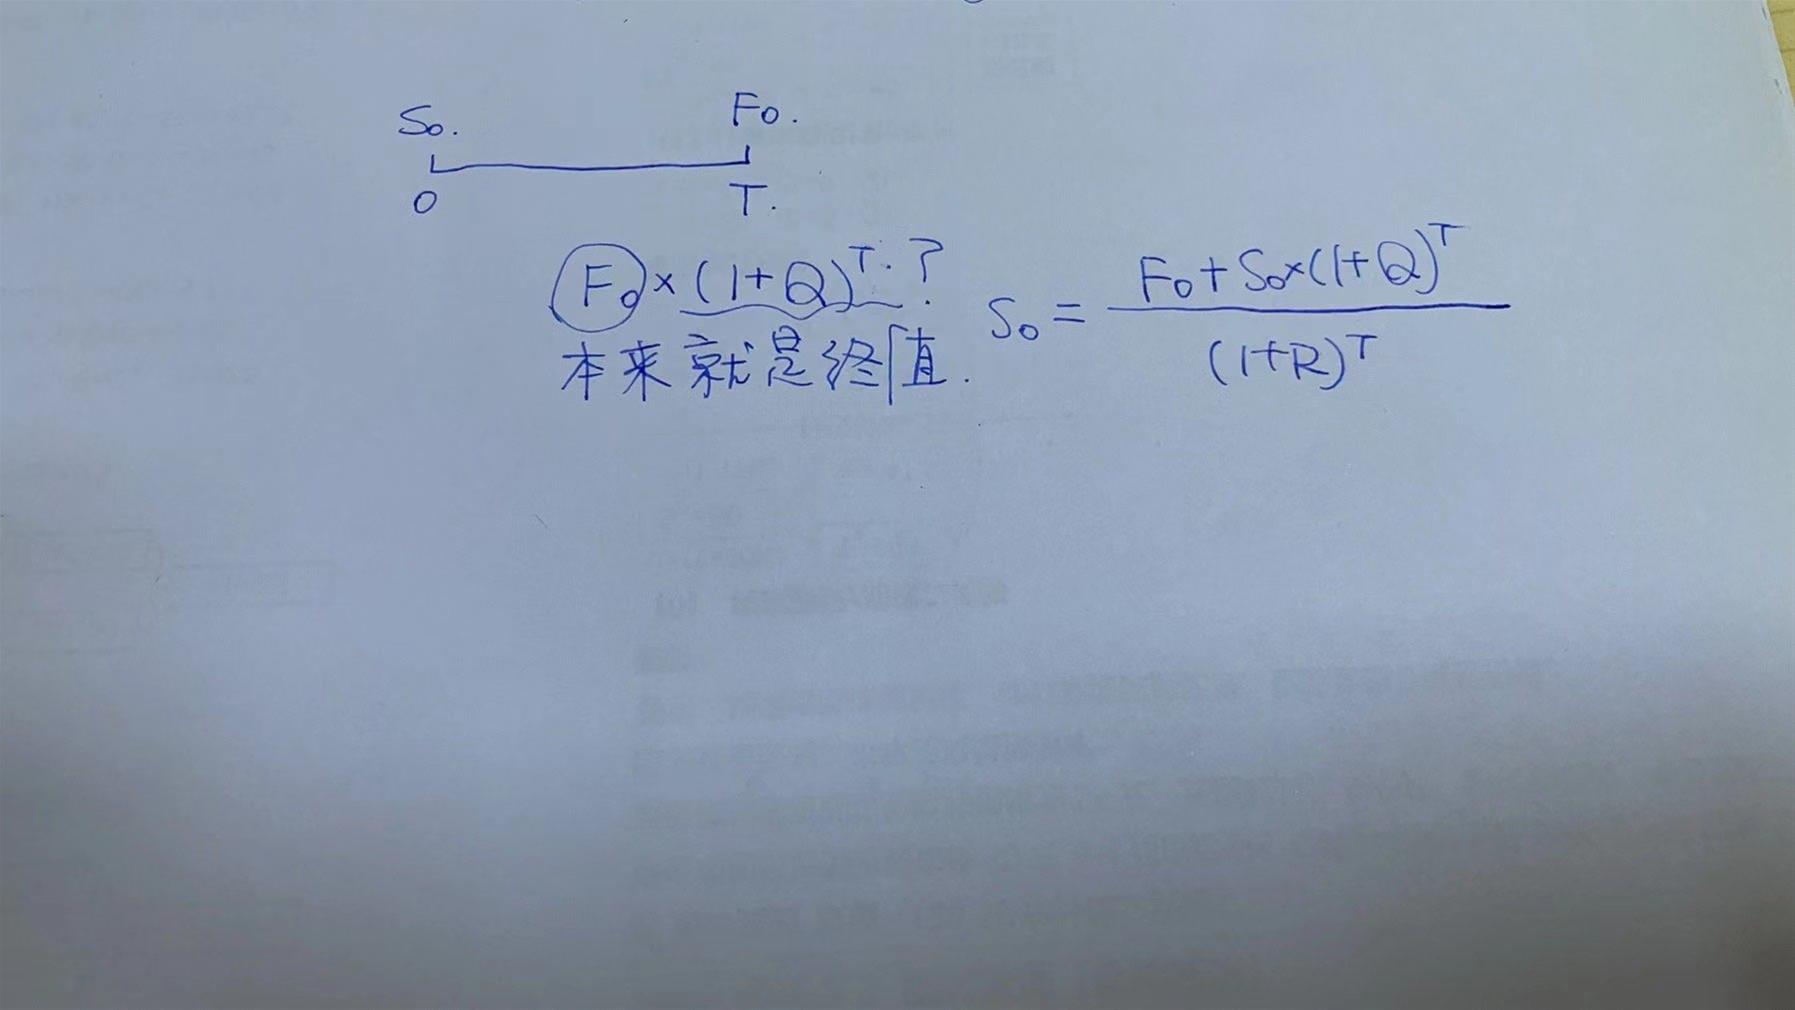 S₀.
F₀.
0
T.
F₀×(1+Q)ᵀ·?
本来就是终值.
S₀ = (F₀+S₀×(1+Q)ᵀ) / (1+R)ᵀ